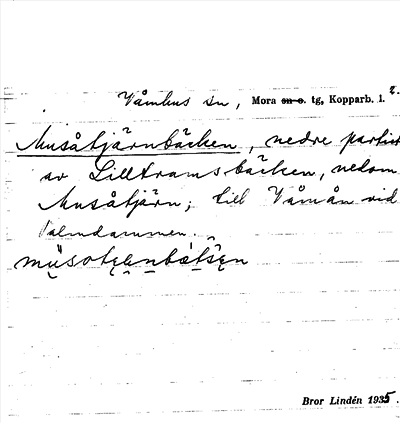 Våmhus sn, Mora sn o. tg, Kopparb. l. 2.
Musåtjärnbäcken, nedre partiet
av Lilltramsbäcken, nedom
Musåtjärn; till Våmån vid
Valmdammen.
Bror Lindén 1935.